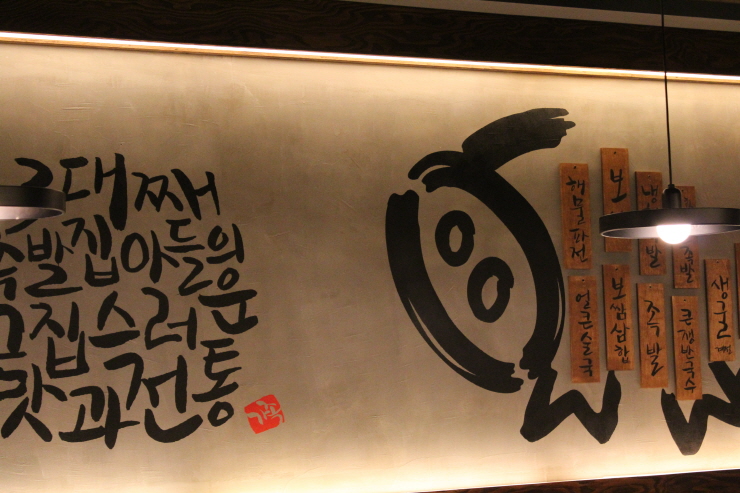 대째
족발집 아들의
고집스러운
맛과 전통
해물파전
얼큰술국
보쌈삼합
족발
큰쟁반국수
생굴